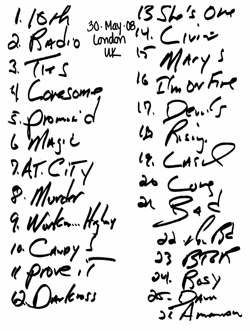 1. 10th
2. Radio
3. Ties
4 Lonesome
5. Promised
6 Magic
7. AT. CITY
8. Murder
9. Workin... Highway
10. Candy's
11. prove it
12. Darkness
30. May. 08.
London
UK
13 She's One
14. Livin
15 Mary's
16 I'm on Fire
17. Devil's
18 Rising
19.
20 Long
21. Bad
22
23 BTRK
24. Rosy
25. Dam
26 American